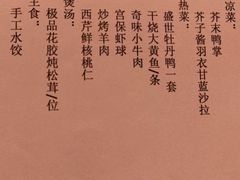 凉菜：
芥末鸭掌
芥子酱羽衣甘蓝沙拉
热菜：
盛世牡丹鸭一套
干烧大黄鱼/条
奇味小牛肉
宫保虾球
炒烤羊肉
西芹鲜核桃仁
煲汤：
极品花胶炖松茸/位
主食：
手工水饺